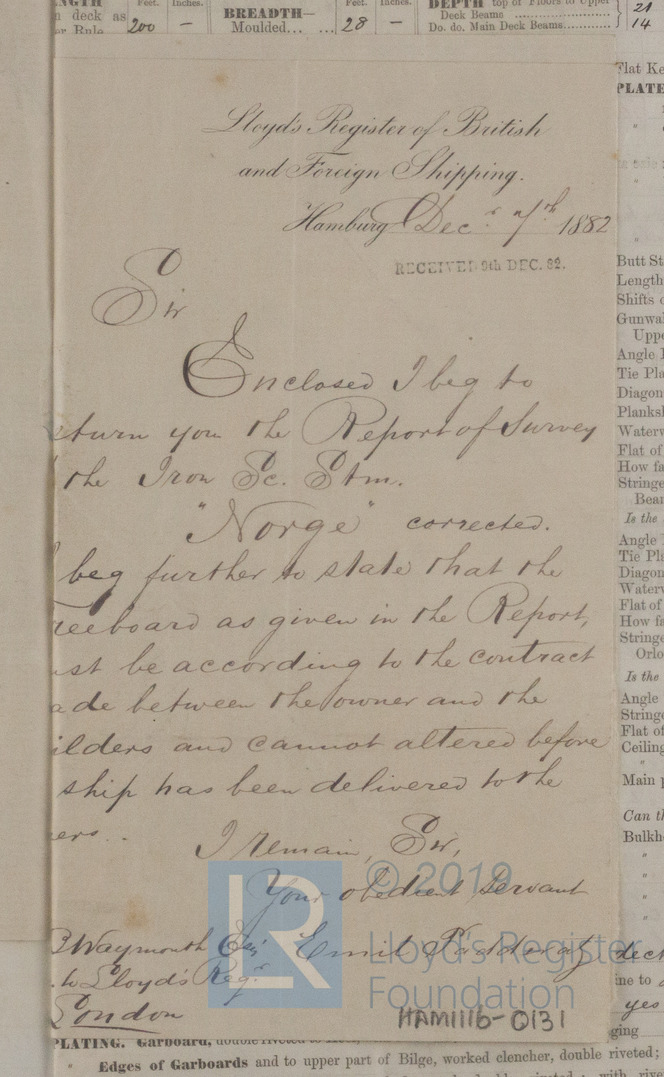 NGTH
n deck as
er Rule
Feet.
Inches.
200 —
BREADTH—
Moulded... ...
Feet.
Inches.
28 —
DEPTH top of Floors to Upper
Deck Beams
Do. do. Main Deck Beams
21
14
Lloyd's Register of British
and Foreign Shipping.
Hamburg Decr. 7th 1882
RECEIVED 9th DEC. 82.
Sir
Enclosed I beg to
eturn you the Report of Survey
the Iron Sc. Stm.
"Norge" corrected.
beg further to state that the
reeboard as given in the Report,
ust be according to the contract
ade between the owner and the
ilders and cannot altered before
ship has been delivered to the
ers.
I remain, Sir,
Your obedient Servant
Waymouth Esqr Emil
to Lloyd's Regr
London
© 2019
LR Lloyd's Register
Foundation
HAM1116-0131
Flat Ke
PLATE
Butt St
Length
Shifts o
Gunwa
Uppe
Angle I
Tie Pla
Diagon
Planksh
Waterw
Flat of
How fa
Stringe
Bear
Is the
Angle I
Tie Pla
Diagon
Waterw
Flat of
How fa
Stringe
Orlo
Is the
Angle
Stringe
Flat of
Ceiling
Main p
Can th
Bulkh
deck
ine to
yes
ging
PLATING. Garboard, double riveted to
" Edges of Garboards and to upper part of Bilge, worked clencher, double riveted;